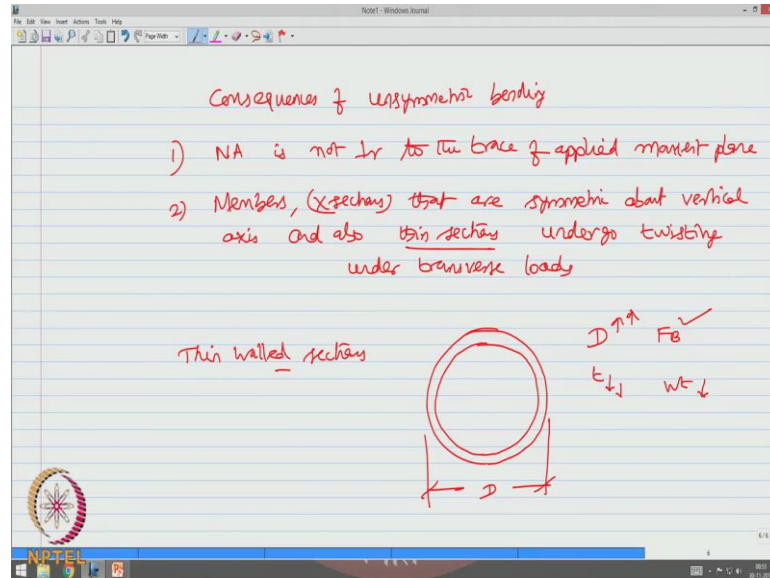 Note1 - Windows Journal
File Edit View Insert Actions Tools Help
Page Width
Consequences of unsymmetric bending
1) NA is not ⊥r to the trace of applied moment plane
2) Members, (x-sections) that are symmetric about vertical
axis and also thin sections undergo twisting
under transverse loads
Thin walled sections
D↑↑ FB ✓
t↓↓ wt ↓
D
NPTEL
6/6
6